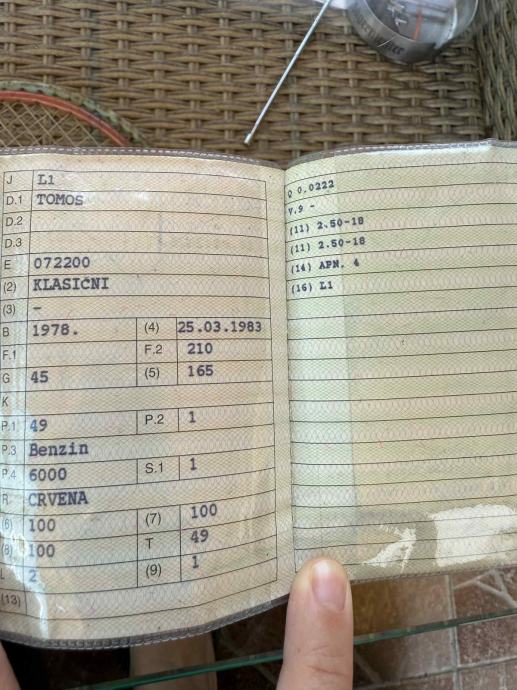 J L1
D.1 TOMOS
D.2
D.3
E 072200
(2) KLASIČNI
(3) -
B 1978. (4) 25.03.1983
F.1 F.2 210
G 45 (5) 165
K
P.1 49 P.2 1
P.3 Benzin
P.4 6000 S.1 1
R CRVENA
(6) 100 (7) 100
(8) 100 T 49
L 2 (9) 1
(13)
Q 0,0222
V.9 -
(11) 2.50-18
(11) 2.50-18
(14) APN. 4
(16) L1